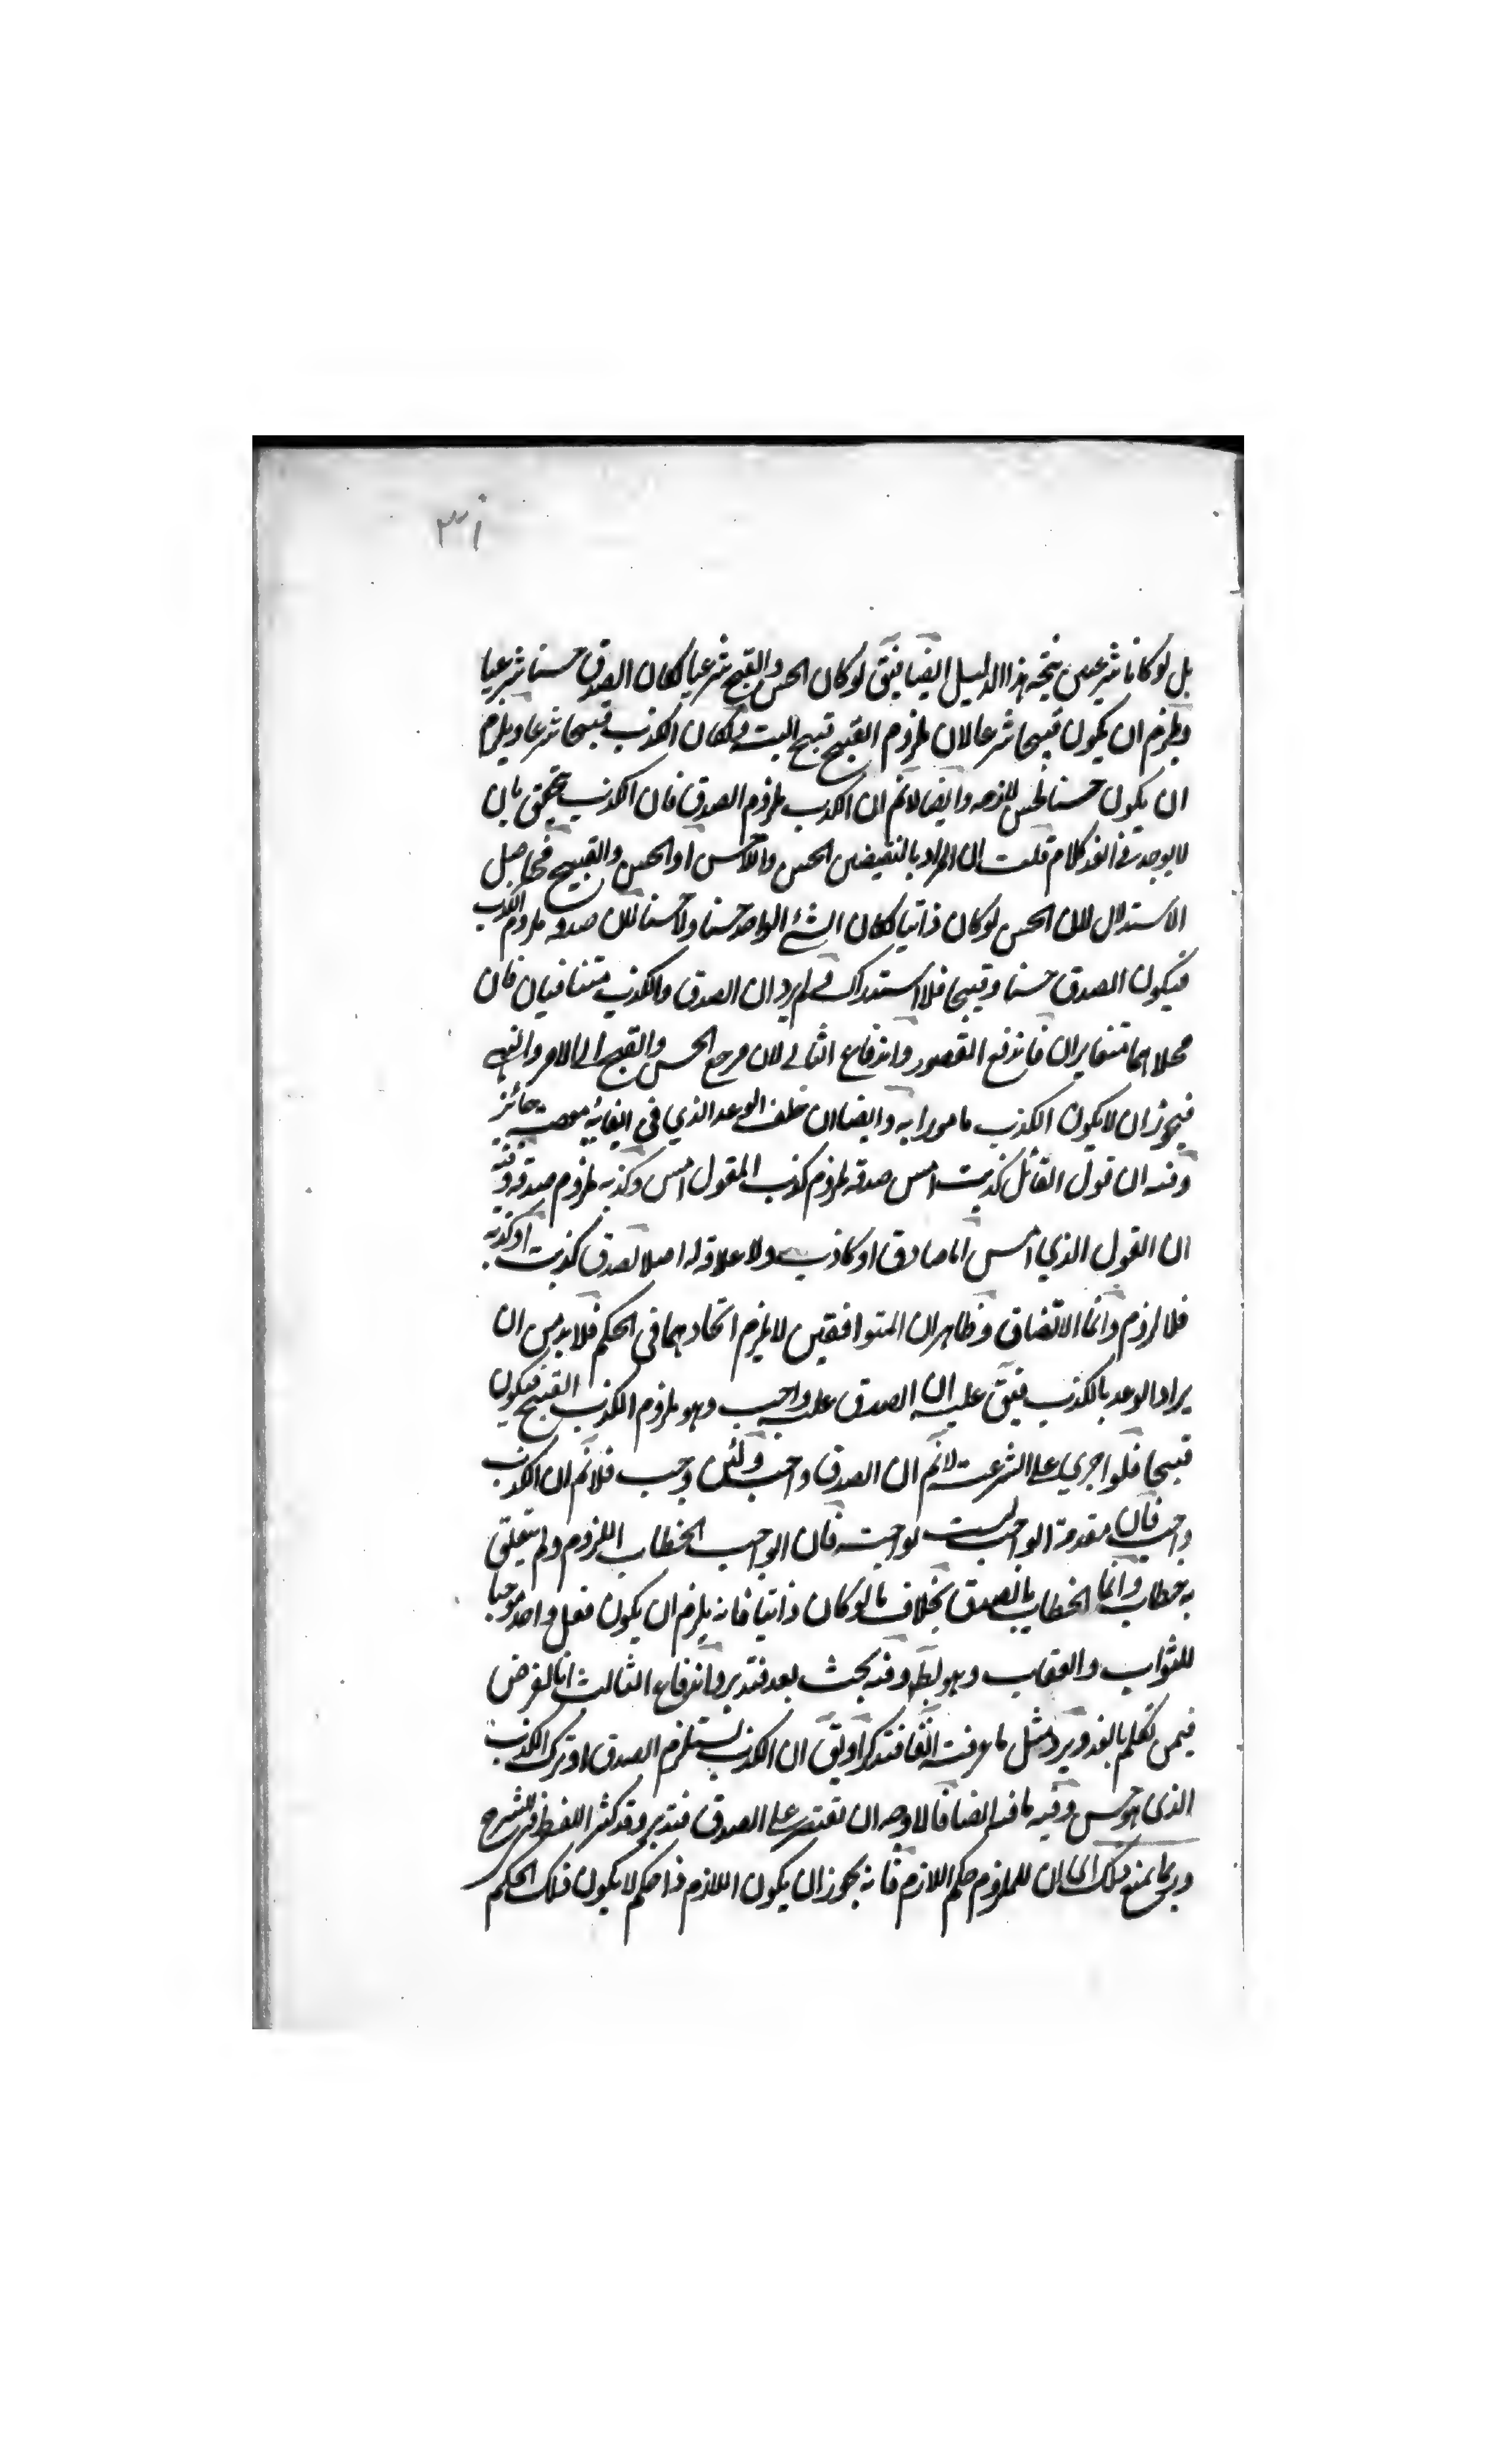 ٣١
بل لو كانا شرعيين يتجه هذا الدليل ايضا فيق لو كان الحسن والقبح شرعيا لكان الصدق حسنا شرعيا
ويلزم ان يكون قبيحا شرعا لان ملزوم القبيح قبيح البتة ولكان الكذب قبيحا شرعا ويلزم
ان يكون حسنا لحسن لازمه وايضا لانم ان الكذب ملزوم الصدق فان الكذب يتحقق بان
لا يوجد في الغد كلام قلت ان المراد بالنقيضين الحسن واللاحسن او الحسن والقبيح فحاصل
الاستدلال ان الحسن لو كان ذاتيا لكان الشئ الواحد حسنا ولاحسنا لان صدقه ملزوم الكذب
فيكون الصدق حسنا وقبيحا فلا استدراك ولم يرد ان الصدق والكذب متنافيان فان
محلاهما متغايران فاندفع القصور واندفاع الثاني لان مرجع الحسن والقبح الى الامر والنهي
فيجوز ان لا يكون الكذب مامورا به وايضا ان خلف الوعد الذي في ايفائه معصية جائز
وفيه ان قول القائل كذبت امس صدقه ملزوم كذب المقول امس وكذبه ملزوم صدقه وفيه
ان القول الذي امس اما صادق او كاذب ولا علاقة له اصلا لصدق كذبت او كذبه
فلا لزوم وانما الاتفاق وظاهر ان المتوافقين لا يلزم اتحادهما في الحكم فلابد من ان
يراد الوعد بالكذب فيق عليه ان الصدق عليه واجب وهو ملزوم الكذب القبيح فيكون
قبيحا فلو اجري على الشرعية لانم ان الصدق واجب ولئن وجب فلانم ان الكذب
واجب فان مقدمة الواجب ليست بواجبة فان الواجب الخطاب الملزوم ولم يتعلق
به خطاب وانما الخطاب بالصدق بخلاف ما لو كان ذاتيا فانه يلزم ان يكون فعل واحد موجبا
للثواب والعقاب وهو بط وفيه بحث بعد فتدبر واندفاع الثالث انا نفرض
فيمن تكلم بالغد ويرد مثل ما عرفت انفا فتذكر او يق ان الكذب يستلزم الصدق او ترك الكذب
الذي هو حسن وفيه ما فيه ايضا فالاوجه ان تقتصر على الصدق فتدبر وقد كثر اللغط في الشرح
وربما يمنع ذلك اي ان للملزوم حكم اللازم فانه يجوز ان يكون اللازم ذا حكم لا يكون ذلك الحكم